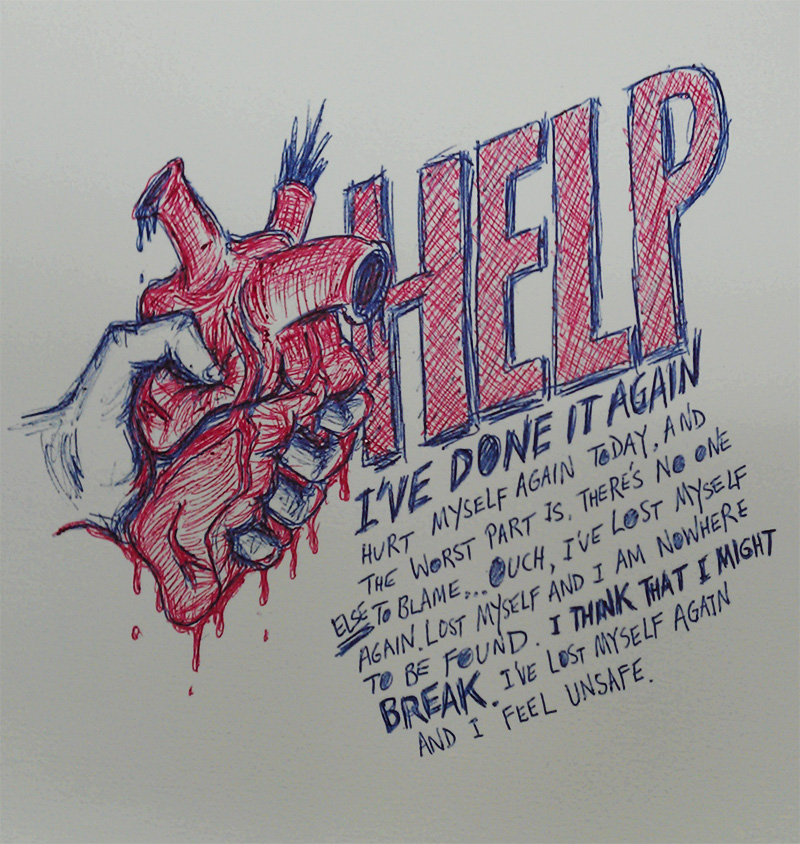 HELP
I'VE DONE IT AGAIN
HURT MYSELF AGAIN TODAY, AND
THE WORST PART IS, THERE'S NO ONE
ELSE TO BLAME... OUCH, I'VE LOST MYSELF
AGAIN. LOST MYSELF AND I AM NOWHERE
TO BE FOUND. I THINK THAT I MIGHT
BREAK. I'VE LOST MYSELF AGAIN
AND I FEEL UNSAFE.